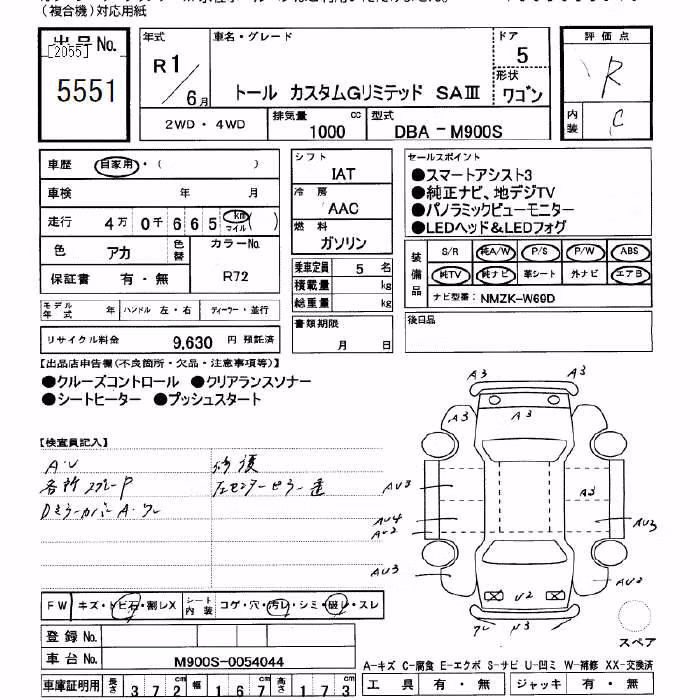 (複合機)対応用紙
出品No. [2055] 5551
年式 R1/6月
車名・グレード トール カスタムGリミテッド SAⅢ
ドア 5
形状 ワゴン
評価点 R
内装 C
2WD・4WD
排気量 1000 cc
型式 DBA-M900S
車歴 自家用・( )
車検 年 月
走行 4万0千665 km マイル ( )
色 アカ 色替 カラーNo. R72
保証書 有・無
モデル年式 年 ハンドル 左・右 ディーラー・並行
リサイクル料金 9,630 円 預託済
シフト IAT
冷房 AAC
燃料 ガソリン
乗車定員 5 名
積載量 kg
総重量 kg
書類期限 月 日
セールスポイント
●スマートアシスト3
●純正ナビ、地デジTV
●パノラミックビューモニター
●LEDヘッド&LEDフォグ
装備品 S/R 純A/W P/S P/W ABS
純TV 純ナビ 革シート 外ナビ エアB
ナビ型番: NMZK-W69D
後日品
【出品店申告欄(不良箇所・欠品・注意事項等)】
●クルーズコントロール ●クリアランスソナー
●シートヒーター ●プッシュスタート
【検査員記入】
A・U 修復
各所 P
Dミラーカバー A・ワレ
A3 A3
A3 A3
AU3 A3
AU4 AU3
AU2
AU3 AU2
U2
ワレ U3
スペア
FW キズ・トビ石・割レX シート内装 コゲ・穴・汚レ・シミ・破レ・スレ
登録No.
車台No. M900S-0054044
A-キズ C-腐食 E-エクボ S-サビ U-凹ミ W-補修 XX-交換済
車庫証明用 長さ 372 幅 167 高さ 173
工具 有・無 ジャッキ 有・無